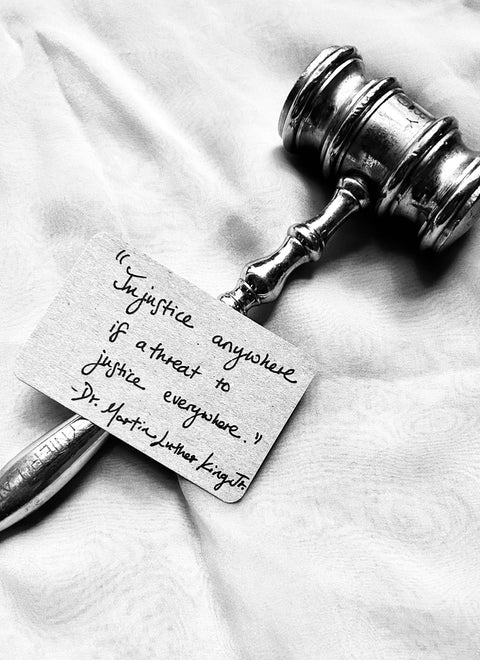 "Injustice anywhere
if a threat to
justice everywhere."
-Dr. Martin Luther King Jr.